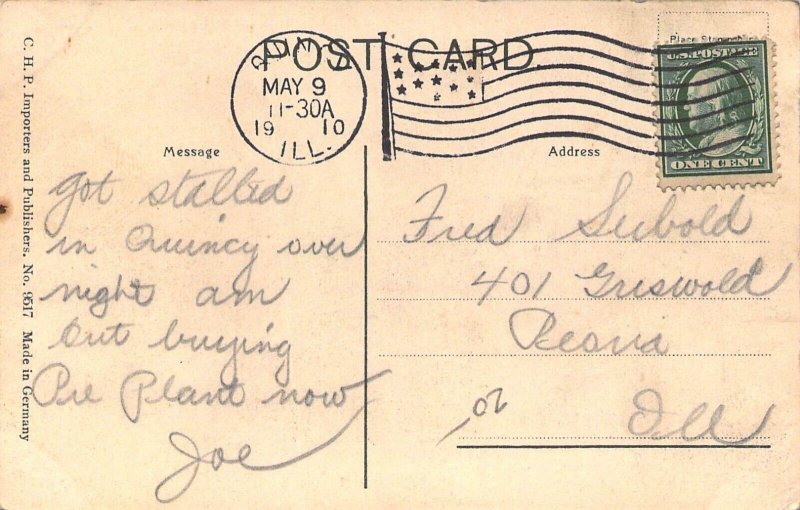 POST CARD
Place Stamp
U.S. POSTAGE
ONE CENT
QUINCY
MAY 9
11-30A
19 10
ILL.
Message
Address
Got stalled
in Quincy over
night am
Out buying
Pie Plant now
Joe
Fred Seibold
401 Griswold
Peoria
Ill
C. H. P. Importers and Publishers. No. 9517 Made in Germany